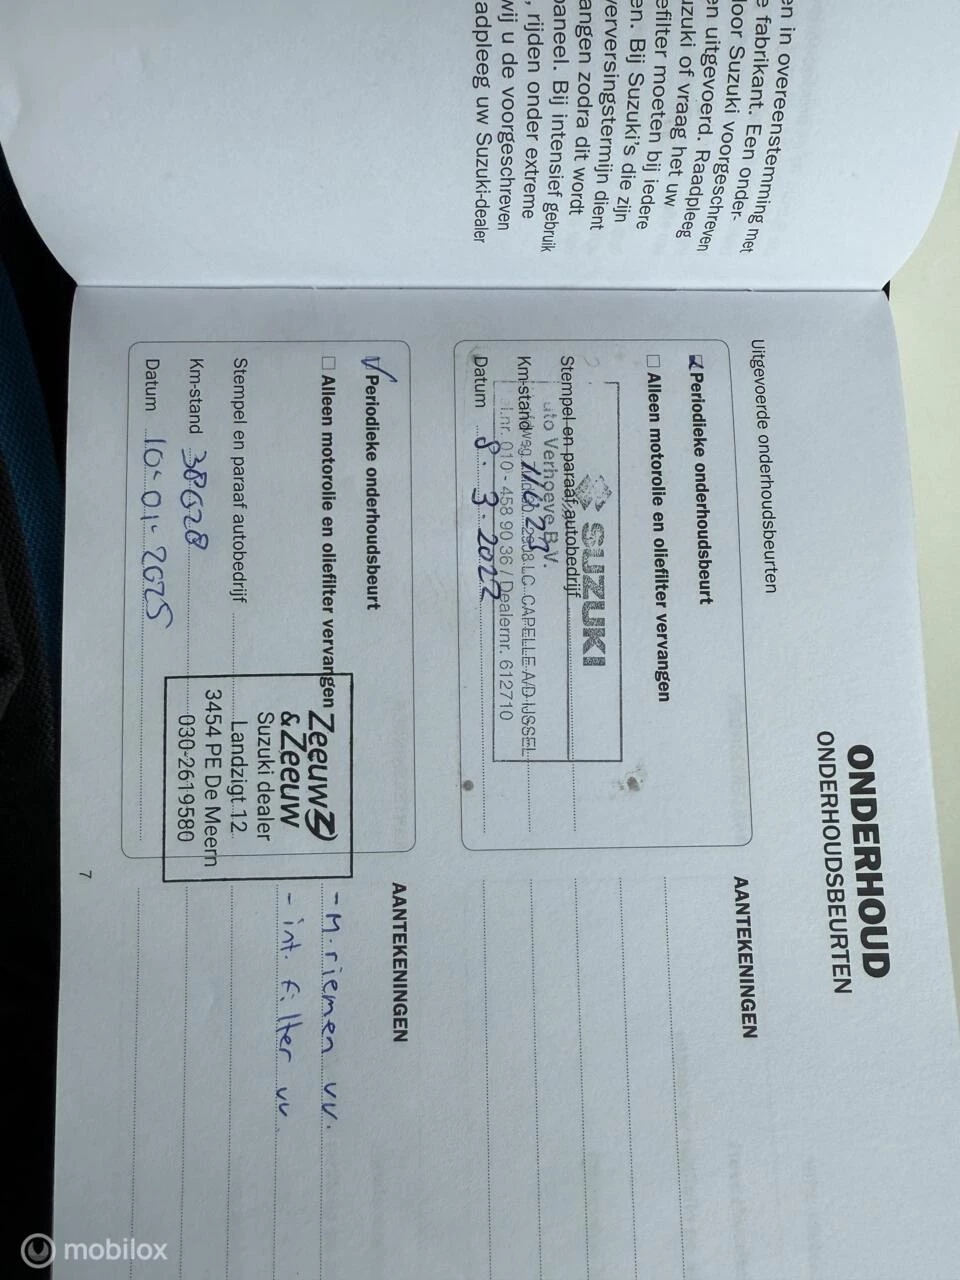 en in overeenstemming met
e fabrikant. Een onder-
door Suzuki voorgeschreven
en uitgevoerd. Raadpleeg
uzuki of vraag het uw
efilter moeten bij iedere
en. Bij Suzuki's die zijn
verversingstermijn dient
angen zodra dit wordt
paneel. Bij intensief gebruik
, rijden onder extreme
wij u de voorgeschreven
adpleeg uw Suzuki-dealer
ONDERHOUD
ONDERHOUDSBEURTEN
Uitgevoerde onderhoudsbeurten
Periodieke onderhoudsbeurt
Alleen motorolie en oliefilter vervangen
Stempel en paraaf autobedrijf
Km-stand
Datum 8.3.2022
SUZUKI
uto Verhoeve B.V.
LC CAPELLE A/D IJSSEL
el.nr. 010 - 458 90 36 / Dealernr. 612710
AANTEKENINGEN
Periodieke onderhoudsbeurt
Alleen motorolie en oliefilter vervangen
Stempel en paraaf autobedrijf
Km-stand
Datum 10-01-2025
Zeeuw
& Zeeuw
Suzuki dealer
Landzigt 12
3454 PE De Meern
030-2619580
AANTEKENINGEN
- M.riemen vv.
- int. filter vv
7
mobilox